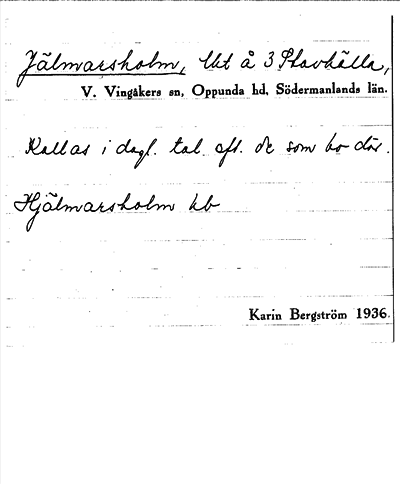 Jälmarsholm, lht å 3 Stavhälla,
V. Vingåkers sn, Oppunda hd, Södermanlands län.
Kallas i dagl. tal. eft. de som bo där.
Hjälmarsholm kb
Karin Bergström 1936.